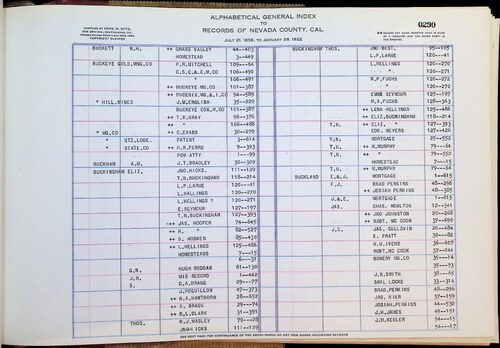 ALPHABETICAL GENERAL INDEX
TO
RECORDS OF NEVADA COUNTY, CAL.
JULY 21, 1856, TO JANUARY 29, 1902
0290
BUCKETT W.H. ++ GRASS VALLEY 44--403
HOMESTEAD 3--449
BUCKEYE GOLD,MNG,CO F.R.MITCHELL 109--64
C.S.Q.& G.M.CO 106--490
" 106--491
++ BUCKEYE MG.CO 101--387
++ PHOENIX,MG.& I.CO 94--589
" HILL,MINES J.M.ENGLISH 35--229
BUCKEYE CON,M.CO 101--387
++ T.B.GRAY 96--376
++ " 106--488
" MG,CO ++ C.EVANS 30--270
" QTZ,LODE. PATENT 3--614
" STATE,CO ++ H.H.FERRE 9--393
POW ATTY 1--99
BUCKHAM A.H. ++ J.T.BRADLEY 30--309
BUCKINGHAM ELIZ. JNO.HICKS, 111--129
T.N.BUCKINGHAM 118--214
L.P.LARUE 120--41
L.HALLINGS 120--270
L.HELLINGS ? 120--271
E.SEYMOUR 127--197
T.N.BUCKINGHAM 127--393
++ JAS, HOOPER 74--645
++ H. " 82--527
++ S. HOSKEN 85--430
++ L.HELLINGS 125--486
HOMESTEADS 7--15
" 6--31
G.W. HUGH RODDAN 61--130
J.H. HIS RECORD 1--442
S. C.A.BRAGG 29--77
J.POQUILLON 47--373
++ W.A.HAWTHORN 28--652
++ A. BRAGG 29--74
++ R.L.CLARK 31--391
THOS. W.J.WASLEY 79--28
JNO HICKS 111--129
BUCKINGHAM THOS. JNO BEST, 95--165
L.P.LARUE 120--41
L.HELLINGS 120--270
" 120--271
W.P.FUCHS 120--272
" 120--272
EMMA SEYMOUR 127--197
M.A.FUCHS 128--363
++ LENA HELLINGS 125--486
++ ELIZ,BUCKINGHAM 118--214
T.N. ++ ELIZ, " 127--393
EDW. MEYERS 127--428
T.N. MORTGAGE 25--552
T.U. ++ W.MURPHY 79--64
T.N. ++ " 79--552
HOMESTEAD 7--15
T.U. ++ W.MURPHY 79--64
BUCKLAND E.& J. MORTGAGE 1--615
F.J. BRAD PERKINS 48--296
++ JOSIAH PERKINS 48--385
J.& E. MORTGAGE 1--615
JAS. CHAS. MOULTON 12--341
++ JNO JOHNSTON 20--268
++ ROBT, MC COOK 37--699
J.C. JAS, GULLOVIN 20--484
E. PRATT 30--82
H.H.IVERS 36--607
ROBT,MC COOK 37--244
BOWERY MG,CO 35--14
35--93
J.B.SMITH 38--65
SAML LOCKE 33--314
BRAD,PERKINS 48--296
JAS, HIER 37--159
JOSIAH,PERKINS 44--530
J.W.JAMES 49--151
J.H.KEELER 54--15
54--17